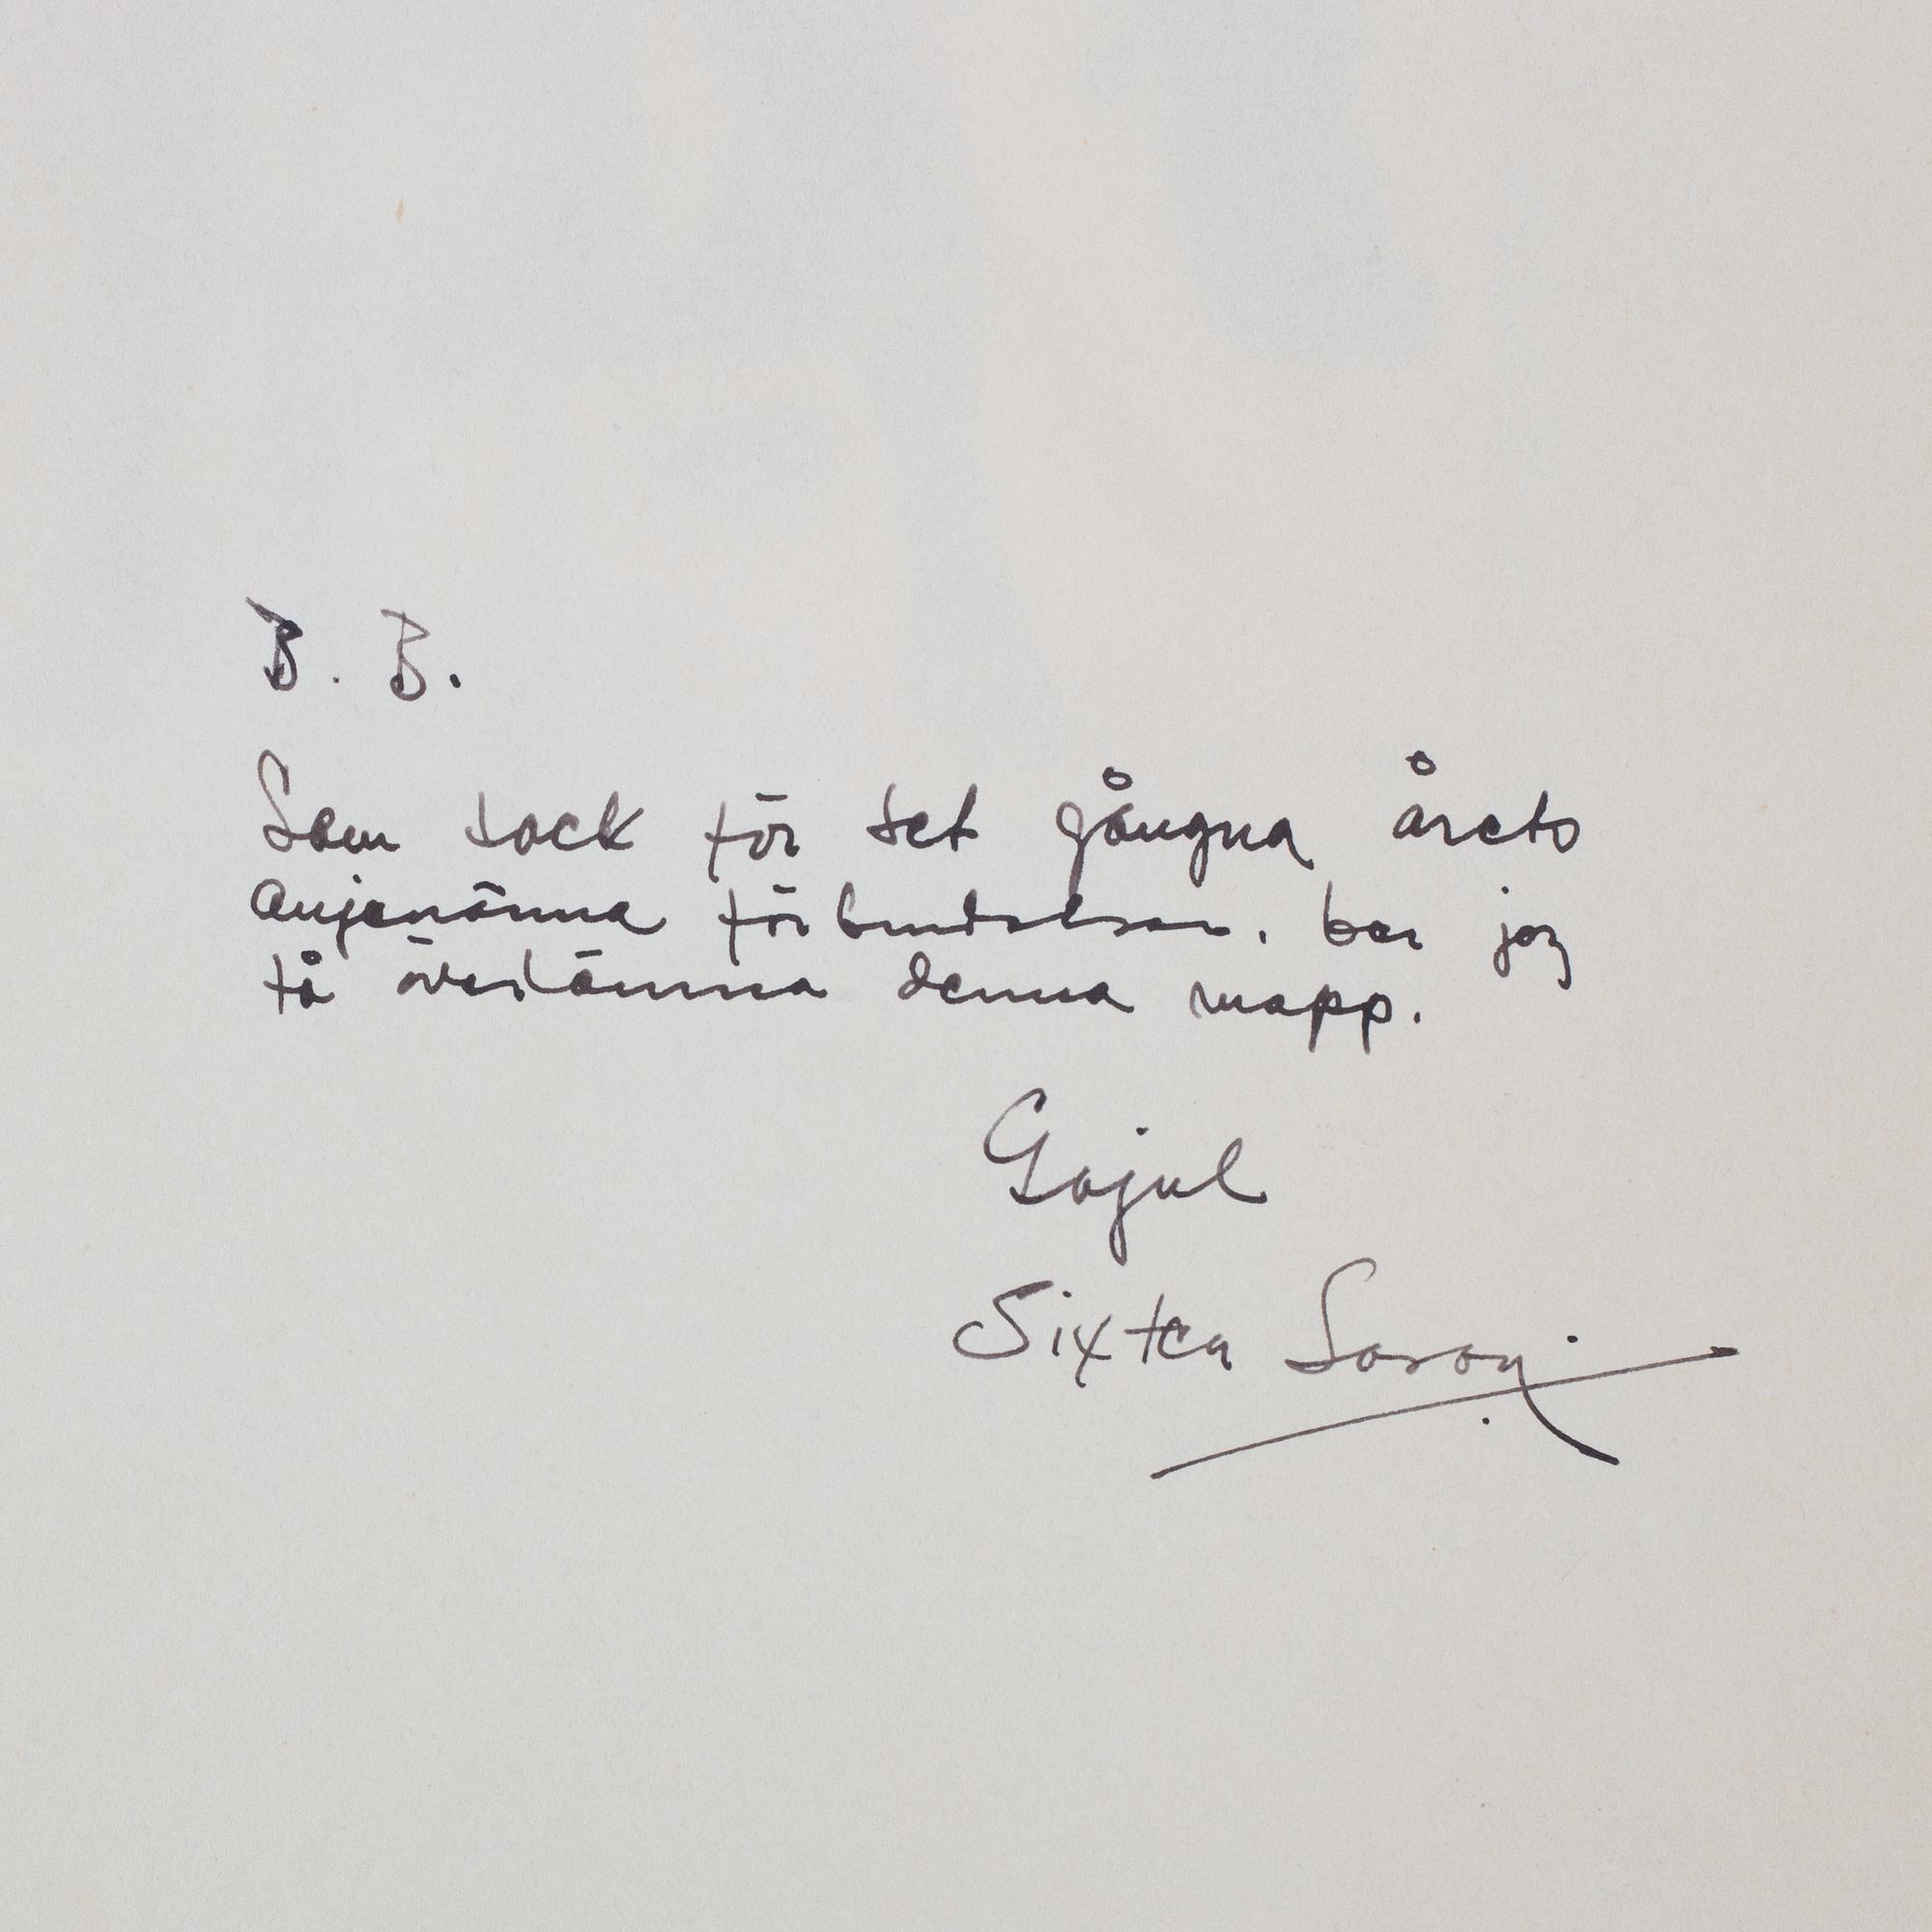 B. B.
Som tack för det gångna årets
angenäma förbindelser, ber jag
få överlämna denna mapp.
Gojul
Sixten